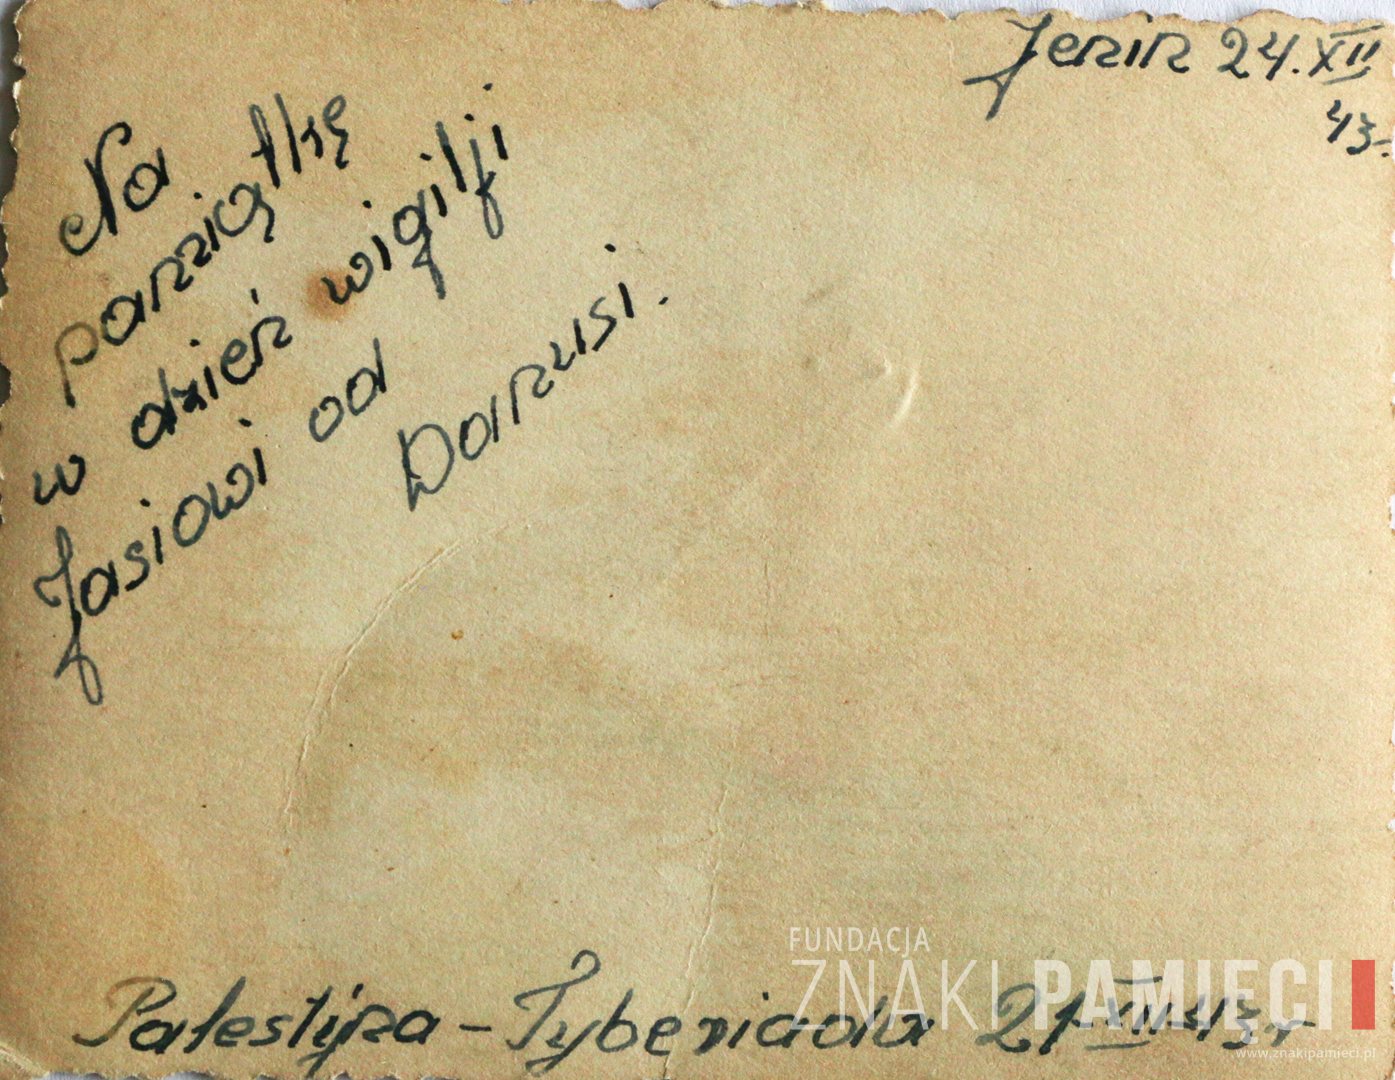 Jenin 24.XII
43.
Na
pamiątkę
w dzień wigilji
Jasiowi od
Danusi.
Palestyna – Tyberiada 21 XII 43 r
FUNDACJA
ZNAKI PAMIĘCI
www.znakipamieci.pl